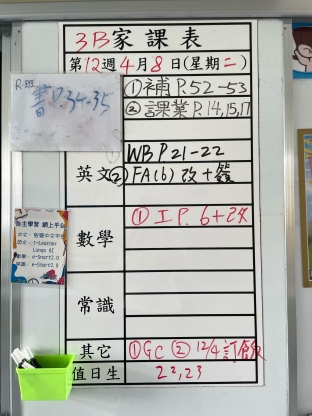 3B家課表
第12週4月8日(星期二)
R班
書P.34-35
①補P.52-53
②課業P.14,15,17
英文
① WB P 21-22
② FA(6) 改+簽
自主學習 網上平台
數學
① I P. 6+2X
常識
其它
①GC ② 12/4訂飯
值日生
22,23